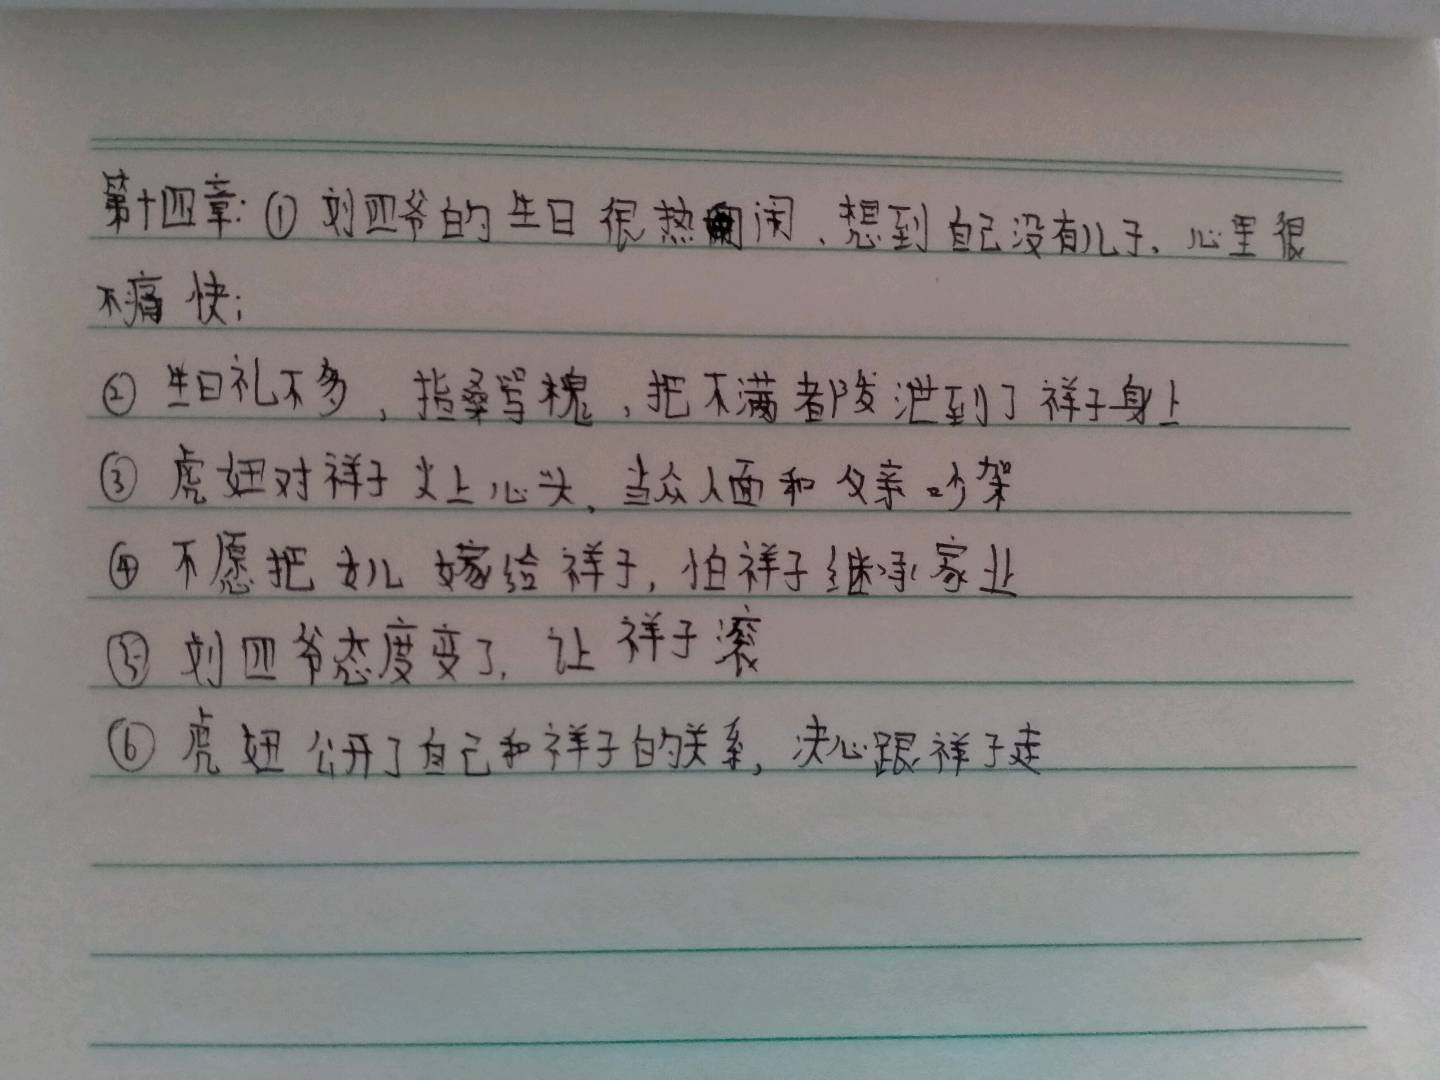 第十四章:① 刘四爷的生日很热闹、想到自己没有儿子、心里很
不痛快;
② 生日礼不多,指桑骂槐,把不满者阝发泄到了祥子身上
③ 虎妞对祥子火上心头、当众人面和父亲吵架
④ 不愿把女儿嫁给祥子,怕祥子继承家业
⑤ 刘四爷态度变了,让祥子滚
⑥ 虎妞公开了自己和祥子的关系,决心跟祥子走